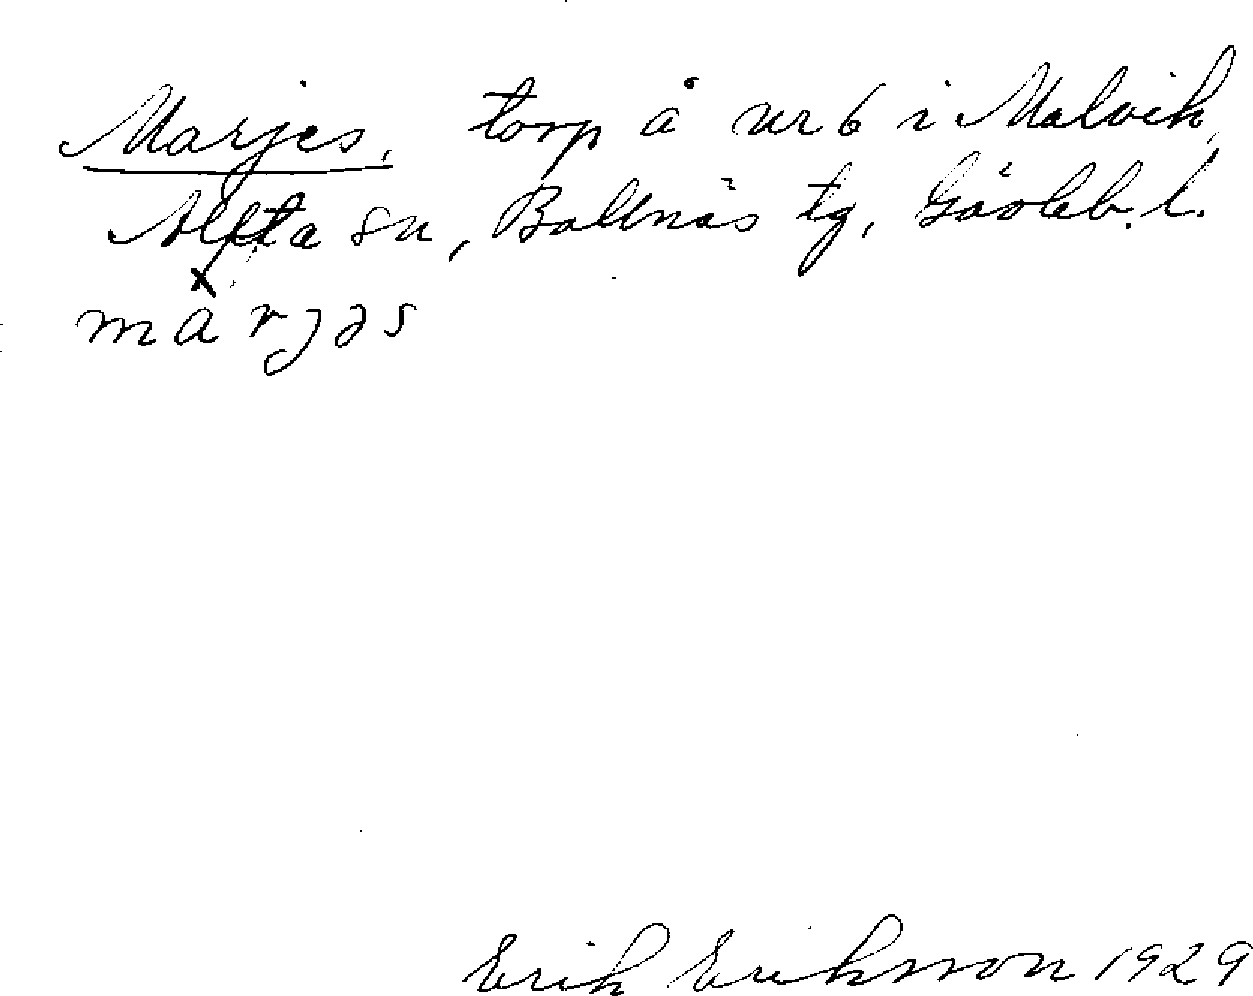 Marjes, torp å nr 6 i Malvik,
Alfta sn, Bollnäs tg, Gävleb. l.
márjəs
Erik Eriksson 1929